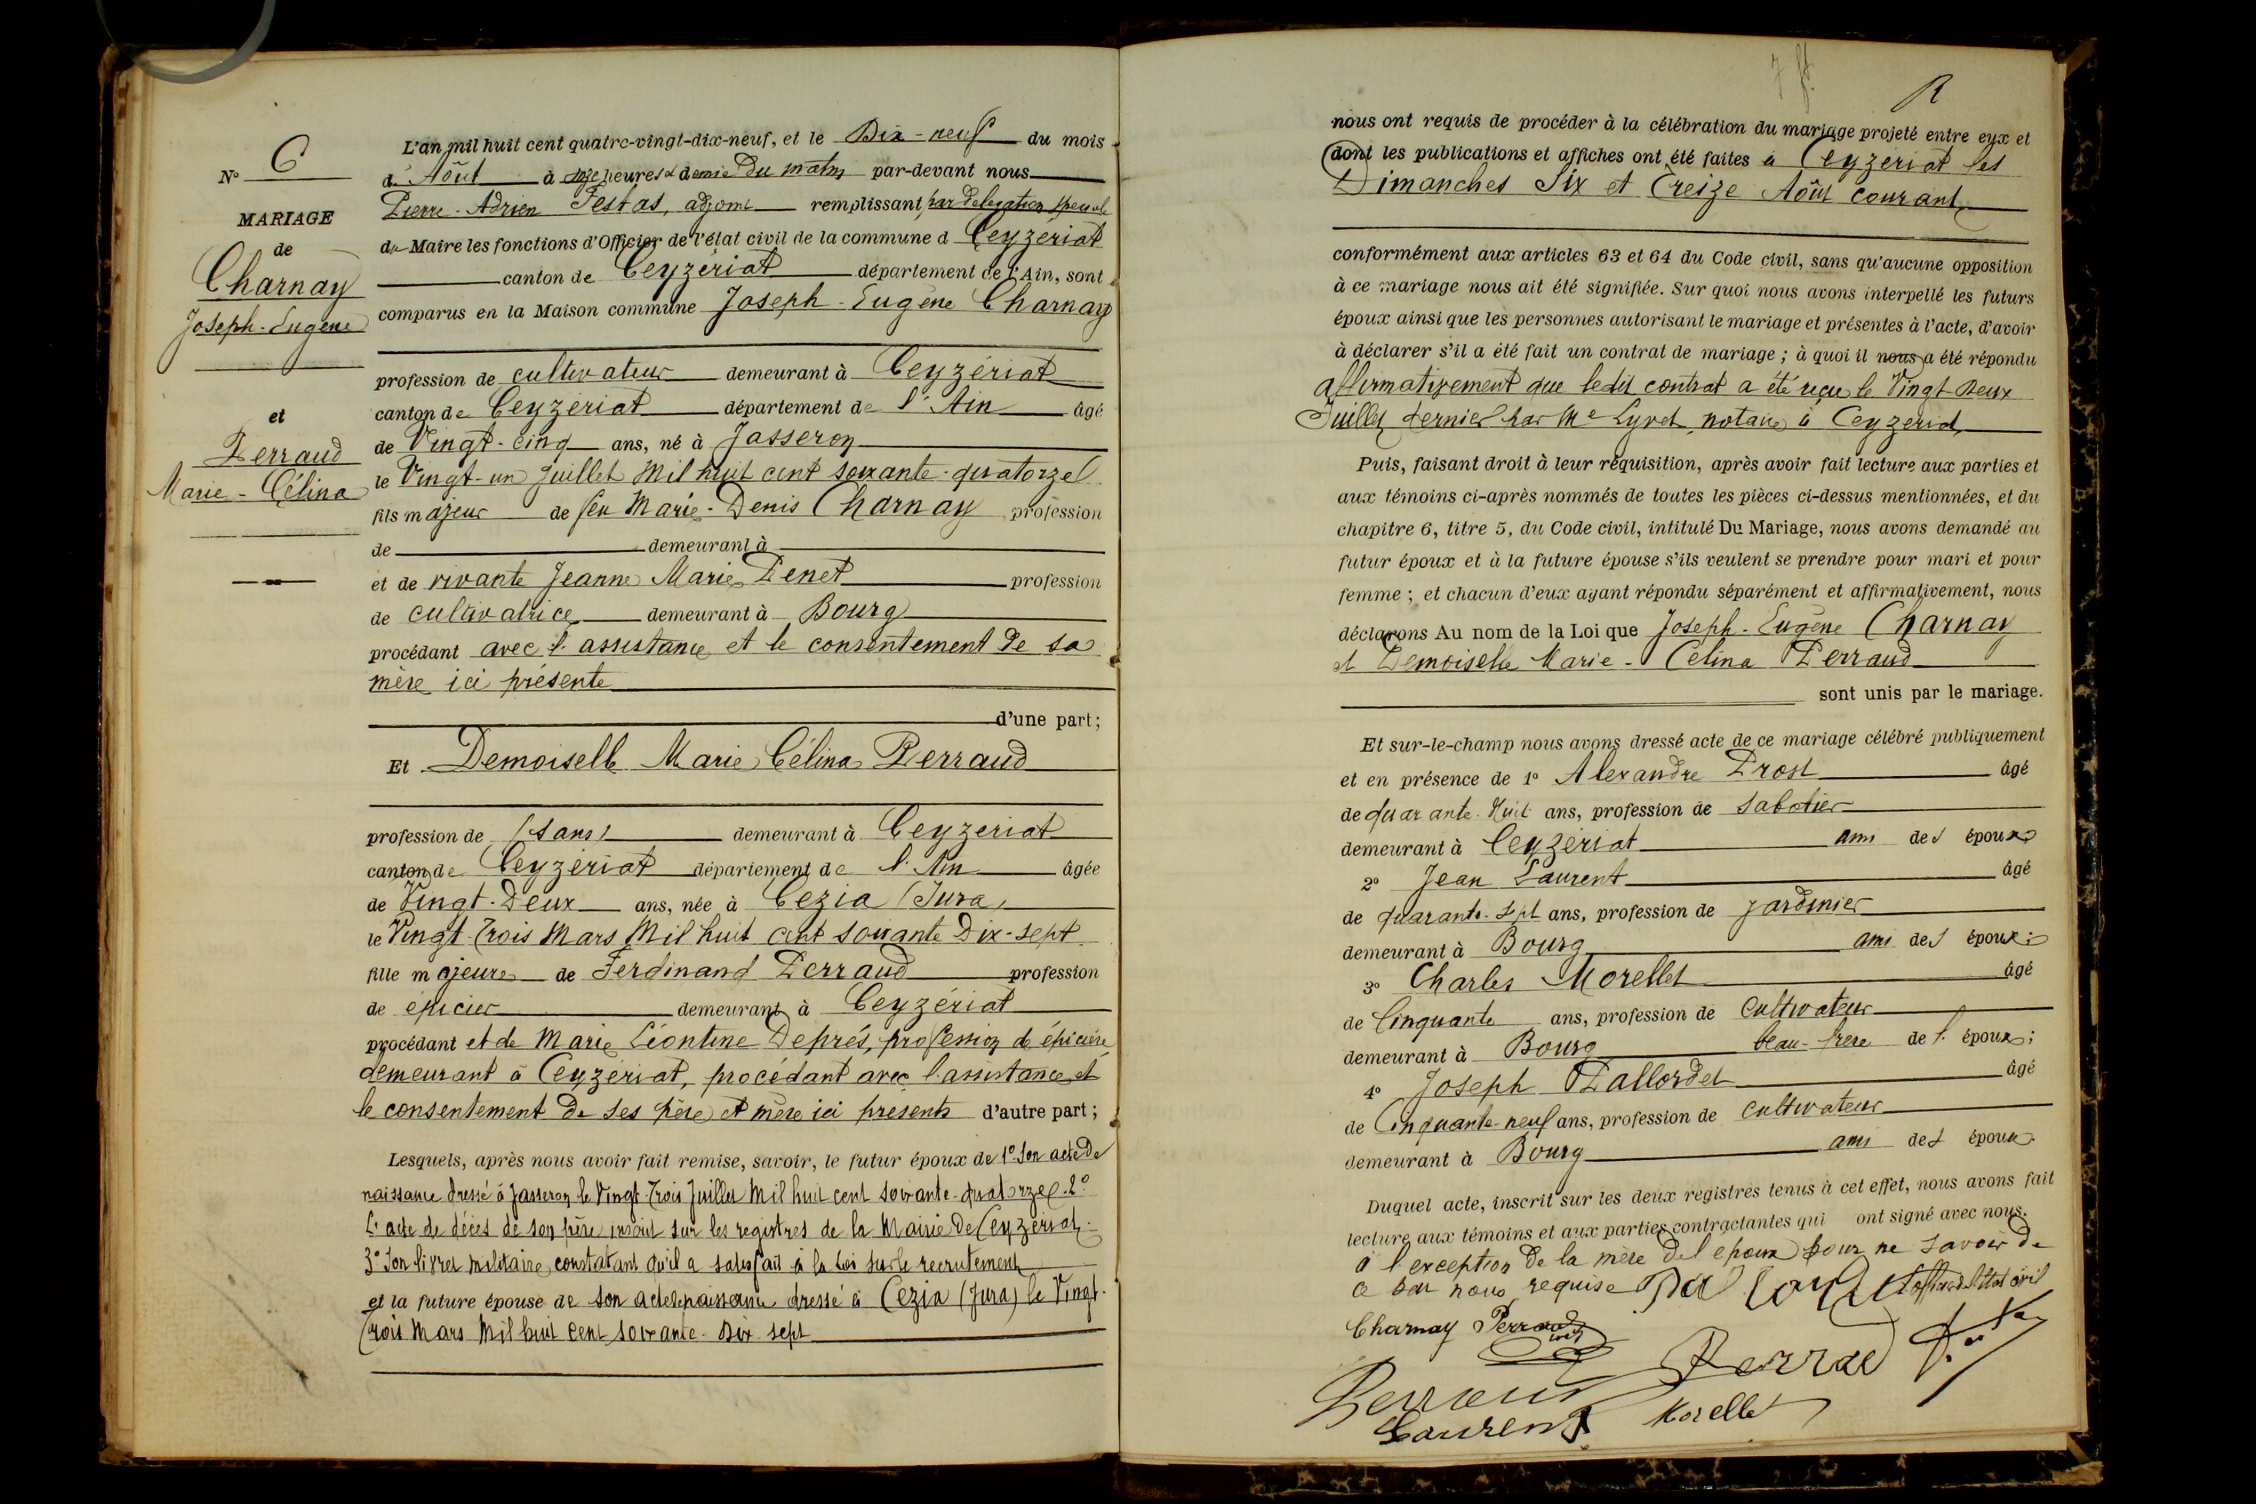 N° 6
MARIAGE
de
Charnay
Joseph-Eugène
et
Perraud
Marie-Célina
L'an mil huit cent quatre-vingt-dix-neuf, et le Dix-neuf du mois
d'Août à onze heures & demie du matin par-devant nous
Pierre-Adrien Festas, adjoint remplissant par délégation spéciale
du Maire les fonctions d'Officier de l'état civil de la commune d Ceyzériat
canton de Ceyzériat département de l'Ain, sont
comparus en la Maison commune Joseph-Eugène Charnay
profession de cultivateur demeurant à Ceyzériat
canton de Ceyzériat département de l'Ain âgé
de Vingt-cinq ans, né à Jasseron
le Vingt-un Juillet Mil huit cent soixante-quatorze
fils majeur de feu Marie-Denis Charnay profession
de demeurant à
et de vivante Jeanne Marie Penet profession
de cultivatrice demeurant à Bourg
procédant avec l'assistance et le consentement de sa
mère ici présente
d'une part;
Et Demoiselle Marie Célina Perraud
profession de (sans) demeurant à Ceyzériat
canton de Ceyzériat département de l'Ain âgée
de Vingt-Deux ans, née à Cezia (Jura)
le Vingt-Trois Mars Mil huit cent soixante Dix-sept
fille majeure de Ferdinand Perraud profession
de épicier demeurant à Ceyzériat
procédant et de Marie Léontine Deprés, profession de épicière
demeurant à Ceyzériat, procédant avec l'assistance et
le consentement de ses père et mère ici présents d'autre part;
Lesquels, après nous avoir fait remise, savoir, le futur époux de 1° Son acte de
naissance dressé à Jasseron le Vingt-Trois Juillet Mil huit cent soixante-quatorze. 2°
L'acte de décès de son père inscrit sur les registres de la Mairie de Ceyzériat.
3° Son livret militaire constatant qu'il a satisfait à la Loi sur le recrutement
et la future épouse de son acte de naissance dressé à Cezia (Jura) le Vingt-
Trois Mars Mil huit cent soixante-Dix-sept
nous ont requis de procéder à la célébration du mariage projeté entre eux et
dont les publications et affiches ont été faites à Ceyzériat les
Dimanches Six et Treize Août courant
conformément aux articles 63 et 64 du Code civil, sans qu'aucune opposition
à ce mariage nous ait été signifiée. Sur quoi nous avons interpellé les futurs
époux ainsi que les personnes autorisant le mariage et présentes à l'acte, d'avoir
à déclarer s'il a été fait un contrat de mariage; à quoi il nous a été répondu
affirmativement que ledit contrat a été reçu le Vingt-Deux
Juillet dernier par Me Lyvet, notaire à Ceyzériat
Puis, faisant droit à leur réquisition, après avoir fait lecture aux parties et
aux témoins ci-après nommés de toutes les pièces ci-dessus mentionnées, et du
chapitre 6, titre 5, du Code civil, intitulé Du Mariage, nous avons demandé au
futur époux et à la future épouse s'ils veulent se prendre pour mari et pour
femme; et chacun d'eux ayant répondu séparément et affirmativement, nous
déclarons Au nom de la Loi que Joseph-Eugène Charnay
et Demoiselle Marie-Célina Perraud
sont unis par le mariage.
Et sur-le-champ nous avons dressé acte de ce mariage célébré publiquement
et en présence de 1° Alexandre Prost âgé
de quarante-Huit ans, profession de sabotier
demeurant à Ceyzériat ami des époux
2° Jean Laurent âgé
de quarante-sept ans, profession de jardinier
demeurant à Bourg ami des époux;
3° Charles Morellet âgé
de Cinquante ans, profession de cultivateur
demeurant à Bourg beau-frère de l' époux;
4° Joseph Pallordet âgé
de Cinquante-neuf ans, profession de cultivateur
demeurant à Bourg ami des époux.
Duquel acte, inscrit sur les deux registres tenus à cet effet, nous avons fait
lecture aux témoins et aux parties contractantes qui ont signé avec nous.
à l'exception de la mère de l'époux pour ne savoir de
ce par nous requise l'officier de l'état civil
Charnay Perraud
Perraud Perraud
Laurent Morellet